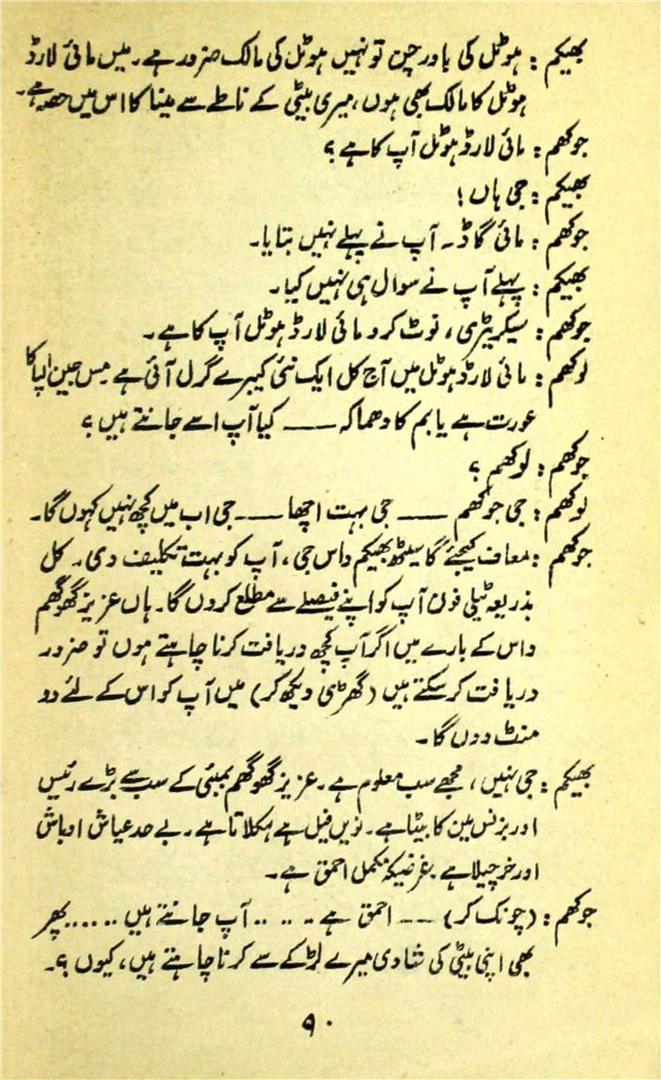 بھیکم : ہوٹل کی باورچن تو نہیں ہوٹل کی مالک ضرور ہے۔ میں مائی لارڈ
ہوٹل کا مالک بھی ہوں، میری بیٹی کے ناطے سے مینا کا اس میں حصہ ہے۔
جوکھم : مائی لارڈ ہوٹل آپ کا ہے ؟
بھیکم : جی ہاں !
جوکھم : مائی گاڈ۔ آپ نے پہلے نہیں بتایا۔
بھیکم : پہلے آپ نے سوال ہی نہیں کیا۔
جوکھم : سیکریٹری، نوٹ کرو مائی لارڈ ہوٹل آپ کا ہے۔
لوکھم : مائی لارڈ ہوٹل میں آج کل ایک نئی کیبرے گرل آئی ہے مس
عورت ہے یا بم کا دھماکہ —— کیا آپ اسے جانتے ہیں ؟
جوکھم : لوکھم ؟
لوکھم : جی جوکھم —— جی بہت اچھا —— جی اب میں کچھ نہیں کہوں گا۔
جوکھم : معاف کیجئے گا سیٹھ بھیکم داس جی، آپ کو بہت تکلیف دی۔ کل
بذریعہ ٹیلی فون آپ کو اپنے فیصلے سے مطلع کروں گا۔ ہاں عزیز گھوگھم
داس کے بارے میں اگر آپ کچھ دریافت کرنا چاہتے ہوں تو ضرور
دریافت کر سکتے ہیں (گھڑی دیکھ کر) میں آپ کو اس کے لئے دو
منٹ دوں گا۔
بھیکم : جی نہیں، مجھے سب معلوم ہے۔ عزیز گھوگھم بمبئی کے سب سے بڑے رئیس
اور بزنس مین کا بیٹا ہے۔ نویں فیل ہے ہکلاتا ہے۔ بے حد عیاش اوباش
اور خرچیلا ہے غرضیکہ مکمل احمق ہے۔
جوکھم : (چونک کر) —— احمق ہے .... آپ جانتے ہیں ...... پھر
بھی اپنی بیٹی کی شادی میرے لڑکے سے کرنا چاہتے ہیں، کیوں ؟۔
۹۰